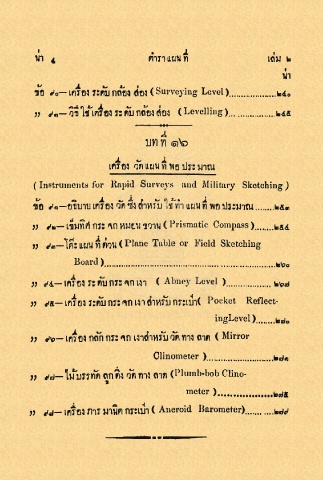 น่า ๔ ตำราแผนที่ เล่ม ๒
น่า
ข้อ ๙๐—เครื่องระดับกล้องส่อง (Surveying Level)................๒๔๐
„ ๙๑—วิธีใช้เครื่องระดับกล้องส่อง (Levelling)................๒๔๕
บทที่ ๑๖
เครื่องวัดแผนที่พอประมาณ
(Instruments for Rapid Surveys and Military Sketching)
ข้อ ๙๑—อธิบายเครื่องวัดซึ่งสำหรับใช้ทำแผนที่พอประมาณ....๒๕๓
„ ๙๒—เข็มทิศกระจกหมอนขวาน (Prismatic Compass)....๒๕๔
„ ๙๓—โต๊ะแผนที่ด่วน (Plane Table or Field Sketching
Board)................๒๖๐
„ ๙๔—เครื่องระดับกระจกเงา (Abney Level)................๒๖๗
„ ๙๕—เครื่องระดับกระจกเงาสำหรับกระเป๋า (Pocket Reflect-
ingLevel)........๒๗๐
„ ๙๖—เครื่องกลักกระจกเงาสำหรับวัดทางลาด (Mirror
Clinometer)................๒๗๑
„ ๙๗—ไม้บรรทัดลูกดิ่งวัดทางลาด (Plumb-bob Clino-
meter)................๒๗๕
„ ๙๘—เครื่องภารมานิตกระเป๋า (Aneroid Barometer)........๒๗๙